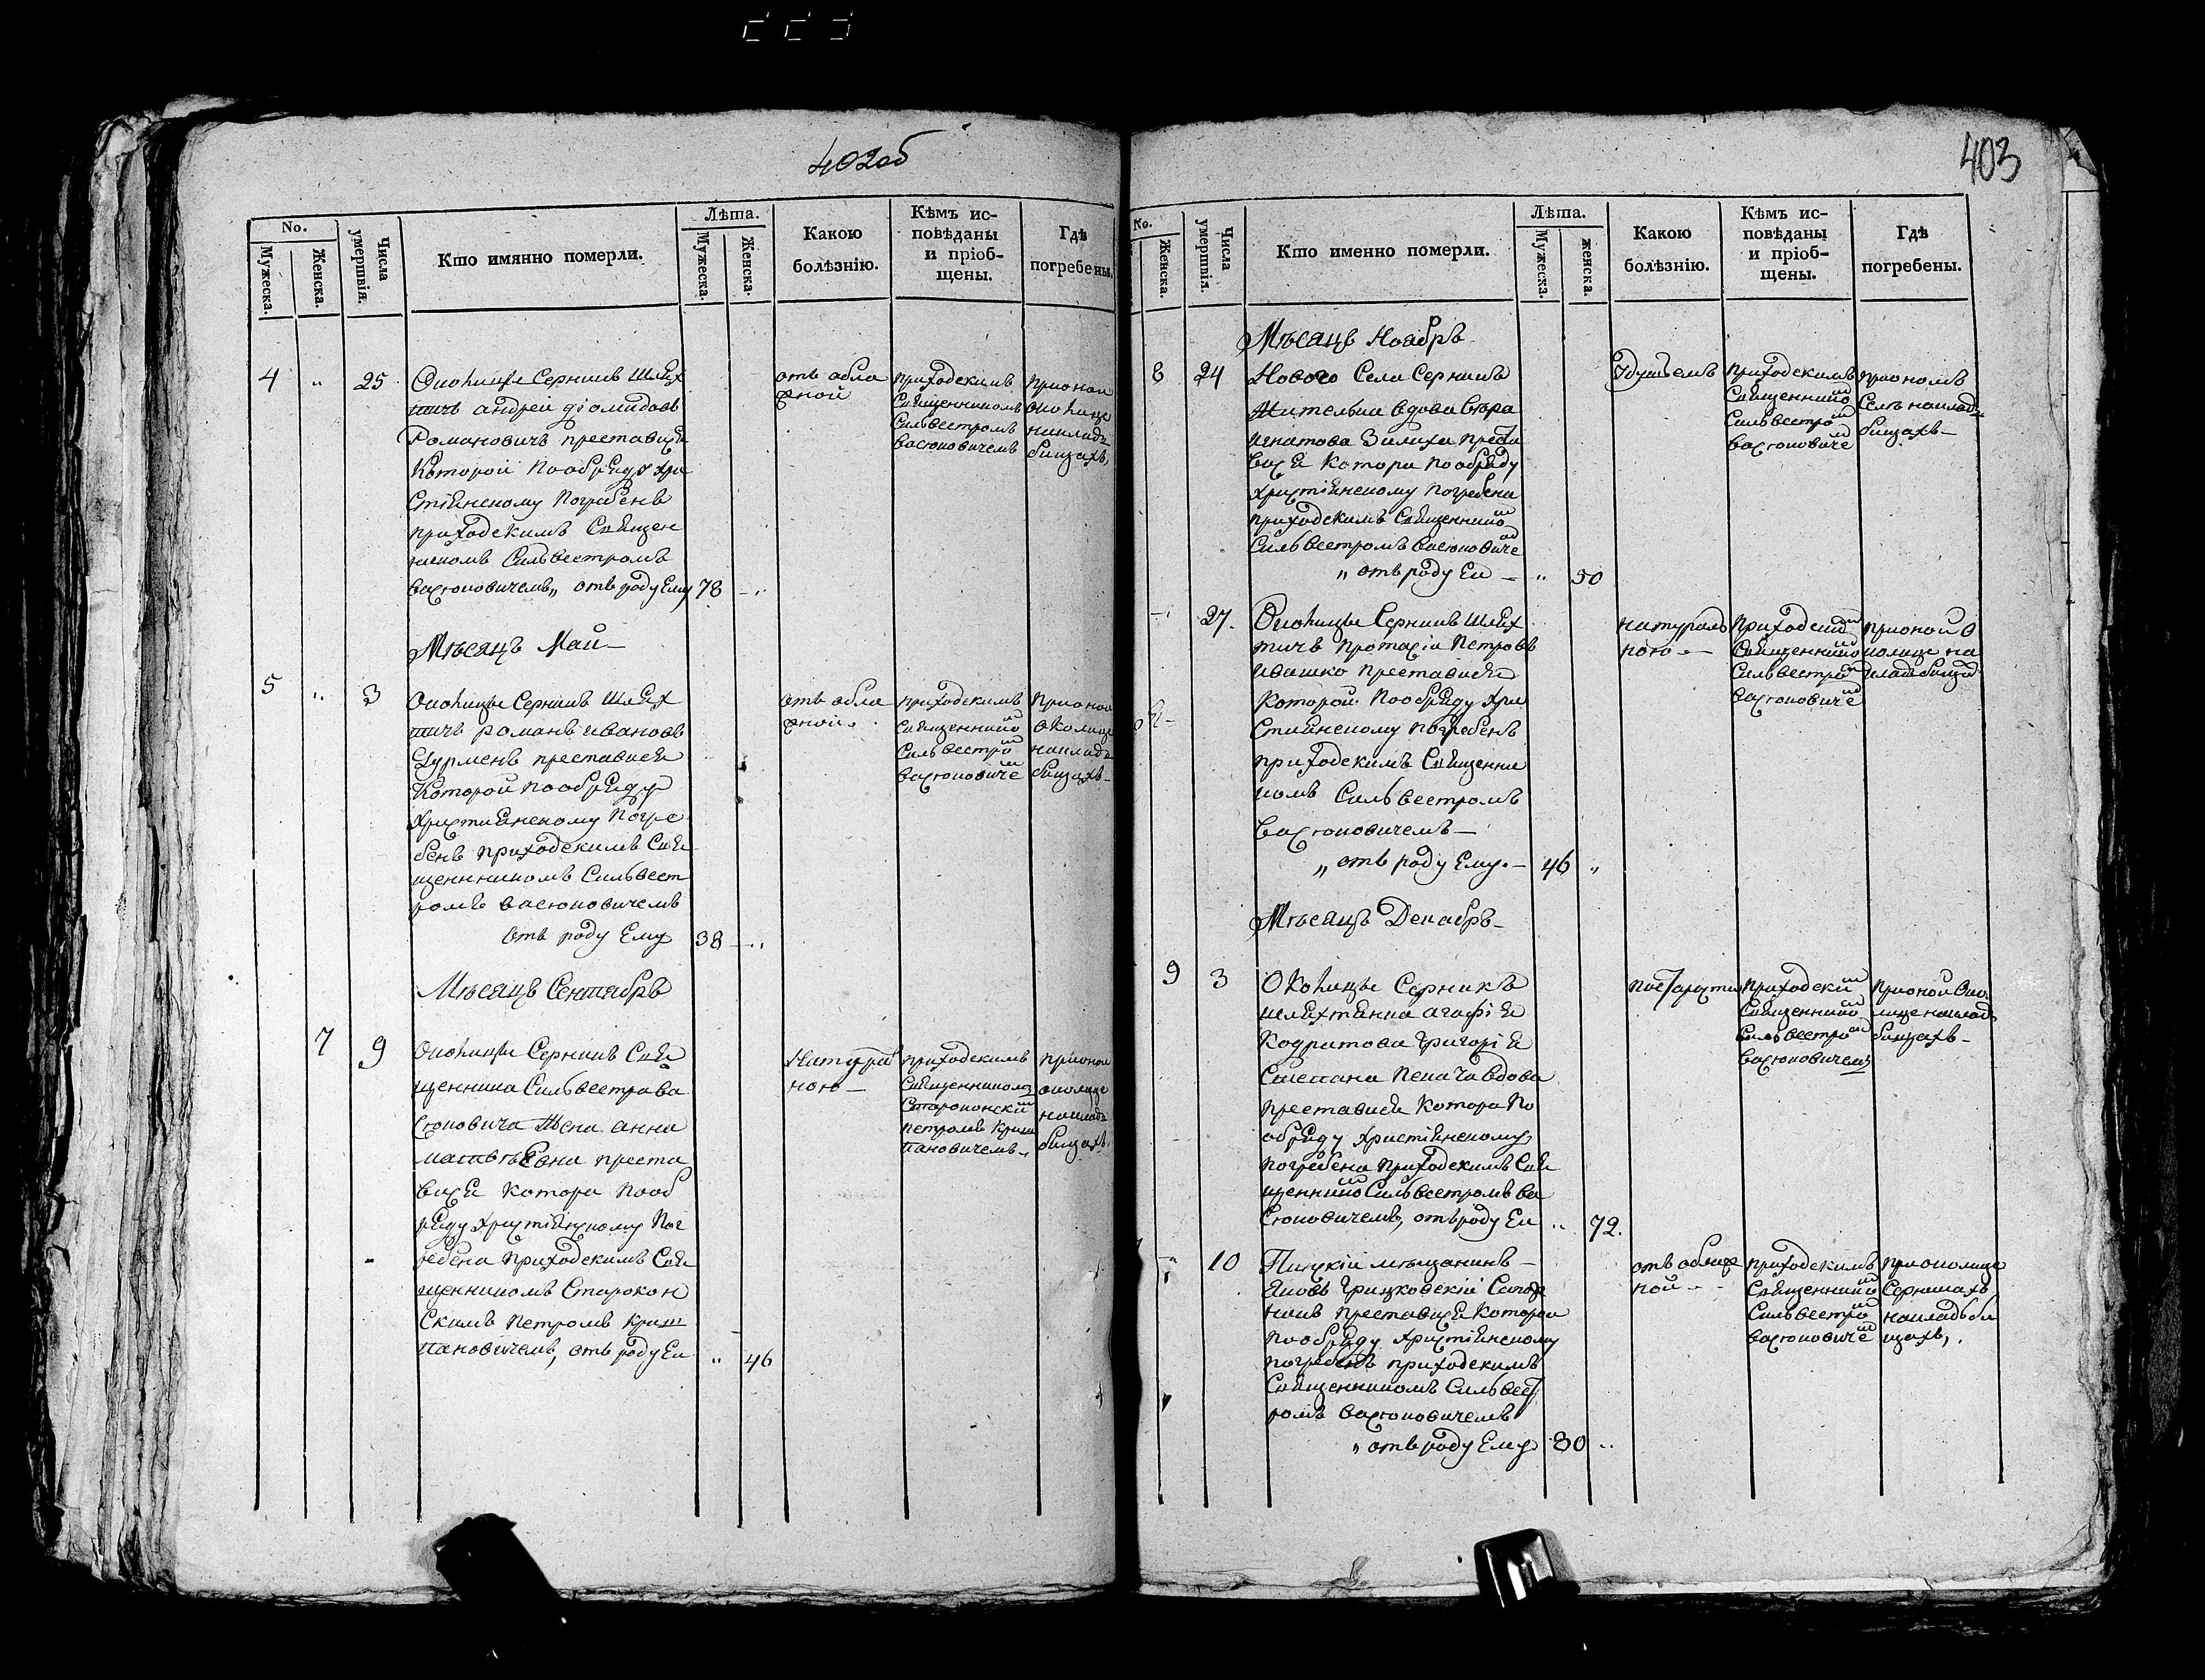 402об
No.
Мужеска.
Женска.
Числа умершвія.
Кто имянно померли.
Лѣта.
Мужеска.
Женска.
Какою болѣзнію.
Кѣмъ исповѣданы и пріобщены.
Гдѣ погребены.
4 „ 25
Околицы Серникъ Шлях
тичъ андрей діомидовъ
Романовичъ преставися
Которой по обряду хри
стіянскому погребенъ
приходскимъ Священ
никомъ Сильвестромъ
васюковичемъ„ отъ роду Ему 78
приходскимъ
Священникомъ
Сильвестромъ
васюковичемъ
при оной
околице
на клад
бищахъ,
Мѣсяцъ Май
5 „ 3
околицы Серникъ Шлях
тичъ романъ ивановъ
преставися
Которой по обряду
християнскому погре
бенъ приходскимъ Свя
щенникомъ Сильвест
ромъ васюковичемъ
отъ роду Ему 38
приходскимъ
Священнико
Сильвестро
васюковиче
при оной
околице
на клад
бищахъ
Мѣсяцъ Сентябръ
7 9
околицы Серникъ Свя
щенника Сильвестра ва
сюковича Жена анна
преста
вися котора по об
ряду християнскому пог
ребена приходскимъ Свя
щенникомъ Старокон
скимъ петромъ криш
тановичемъ, отъ роду Ея „ 46
Натураль
ною
приходскимъ
Священникомъ
Староконски
петромъ криш
тановичемъ
при оной
околице
на клад
бищахъ
403
No.
Женска.
Числа умершвія.
Кто именно померли.
Лѣта.
Мужеска.
женска.
Какою болѣзнію.
Кѣмъ исповѣданы и пріобщены.
Гдѣ погребены.
Мѣсяцъ Ноябръ
8 24
Нового Села Серникъ
Жителька вдова
игнатова преста
вися котора по обряду
християнскому погребена
приходскимъ Священнико
Сильвестромъ васюковиче
„ отъ роду Ея — „ 50
Удушьемъ
приходскимъ
Священнико
Сильвестро
васюковиче
при ономъ
Селѣ на клад
бищахъ
27.
Околицы Серникъ Шлях
тичъ протасій Петровъ
ивашко преставися
Которой по обряду хри
стиянскому погребенъ
приходскимъ Священни
комъ Сильвестромъ
васюковичемъ —
„ отъ роду Ему. — 46 „
натураль
ною —
приходски
Священнико
Сильвестро
васюковиче
при оной о
колице на
кладбища
Мѣсяцъ Декабръ
9 3
Околицы Серникъ
шляхтянка агафія
Кодратова Григорія
вдова
преставися котора по
обряду християнскому
погребена приходскимъ Свя
щеннико Сильвестромъ ва
сюковичемъ, отъ роду Ея „ 72.
приходски
Священнико
Сильвестро
васюковичемъ
при оной око
лице на клад
бищахъ
10
Пинскій мѣщанинъ
Яковъ
преставися которой
по обряду християнскому
погребенъ приходскимъ
Священникомъ Сильвест
ромъ васюковичемъ
„ отъ роду Ему 30 „
приходскимъ
Священнико
Сильвестро
васюковиче
при околице
Серникахъ
на кладби
щахъ,